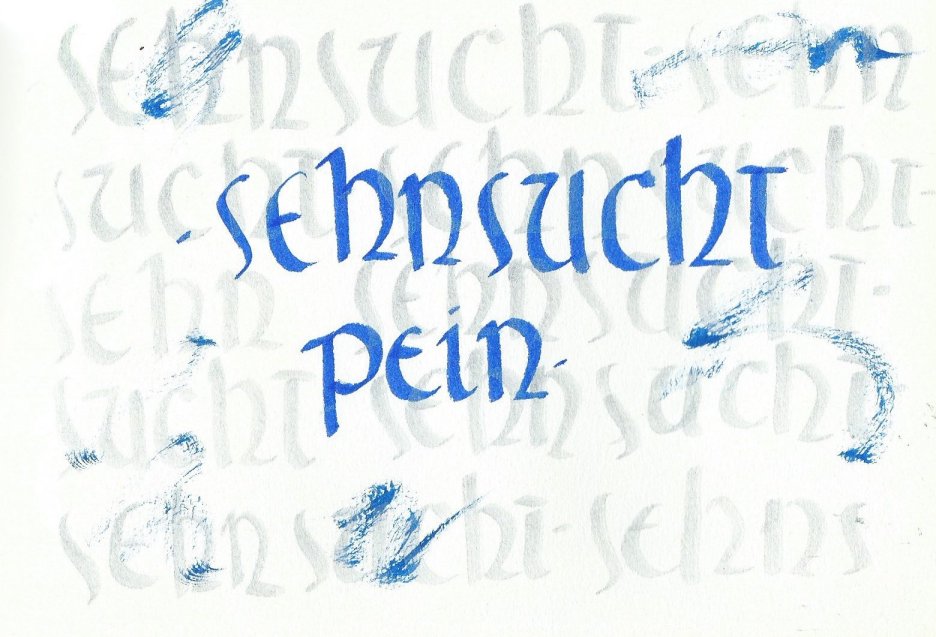 sehnsucht·sehn
sucht sehnsucht-
-sehnsucht
sehn sehnsucht-
pein-
sucht sehnsucht
sehnsucht-sehns